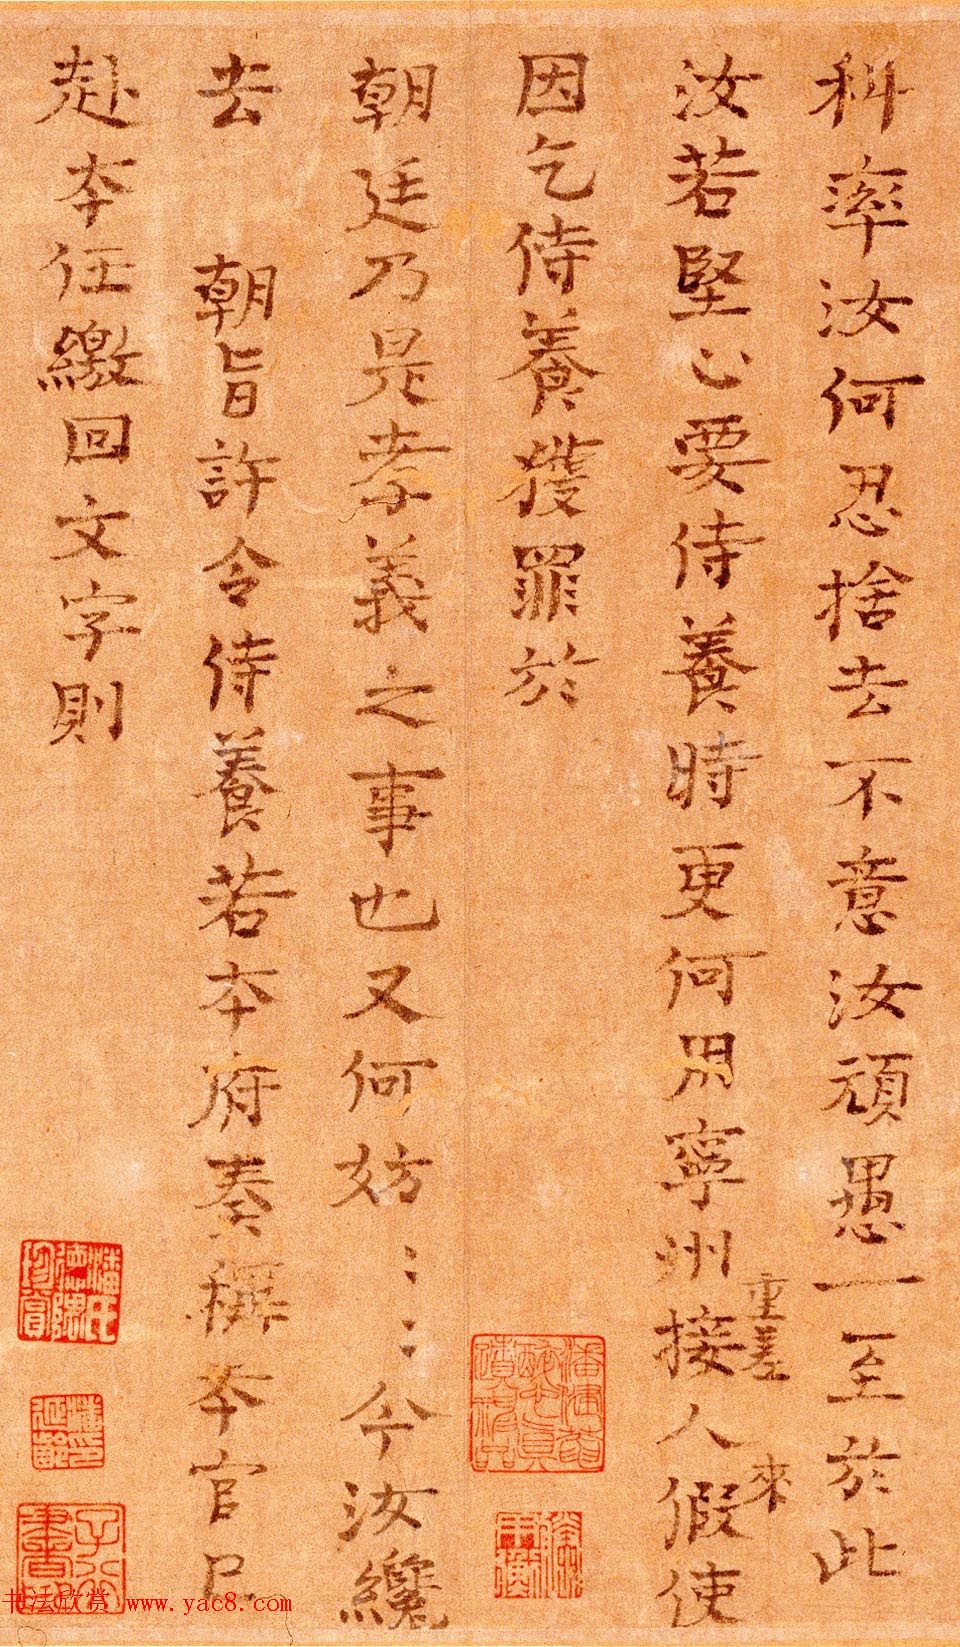 科率汝何忍捨去不意汝頑愚一至於此
汝若堅心要侍養時更何用寧州重差接人來假使
因乞侍養獲罪於
朝廷乃是孝義之事也又何妨：：今汝纔
去　朝旨許令侍養若本府奏稱本官已
赴本任繳回文字則
潘氏德隅珍賞
书法欣赏 www.yac8.com